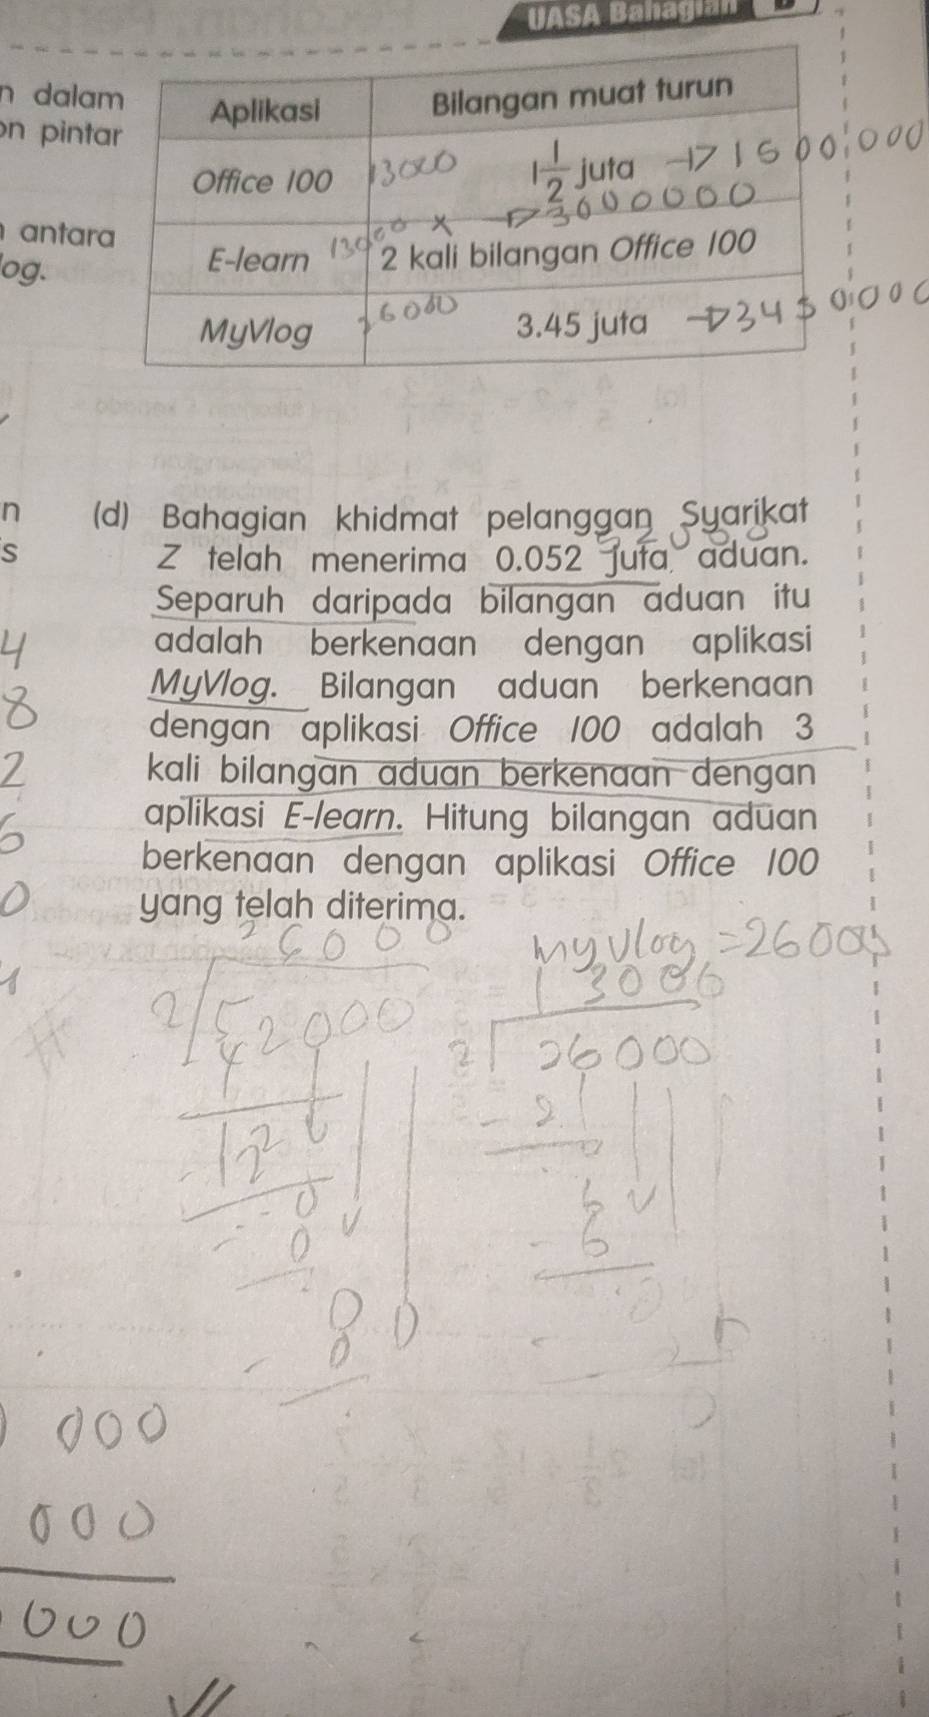 UASA Bahagian
n dalam
on pintar
antara
og.
Aplikasi Bilangan muat turun
Office 100 13000 1 1/2 juta → 1500000
→ 3000000
E-learn 13000 x 2 kali bilangan Office 100
MyVlog 26000 3.45 juta → 3450000
n
s
4
8
2
6
0
(d) Bahagian khidmat pelanggan Syarikat
Z telah menerima 0.052 juta aduan.
Separuh daripada bilangan aduan itu
adalah berkenaan dengan aplikasi
MyVlog. Bilangan aduan berkenaan
dengan aplikasi Office 100 adalah 3
kali bilangan aduan berkenaan dengan
aplikasi E-learn. Hitung bilangan aduan
berkenaan dengan aplikasi Office 100
yang telah diterima.
26000
myvlog = 26000
2 52000
13000
2 26000
4
- 2
- 12
0
0
6
- 6
0 0
- 0
000
000
000